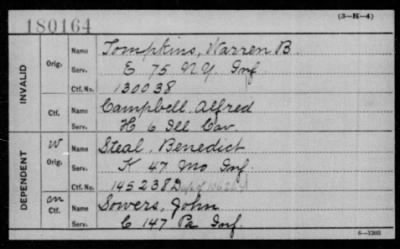 180164
(3—H—4)
INVALID
Orig. Name Tompkins, Warren B.
Serv. E 75 N.Y. Inf
Ctf. No. 130038
Ctf. Name Campbell, Alfred
Serv. H 6 Ill Cav.
DEPENDENT
W Orig. Name Steal, Benedict
Serv. K 47 Mo Inf.
Ctf. No. 145238
Ctf. Name Sowers, John
Serv. C 147 Pa Inf.